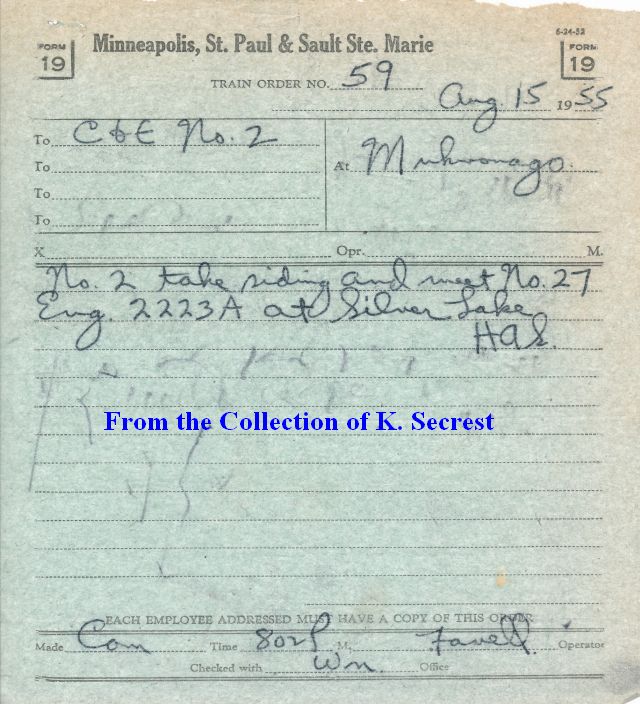 6-24-52
FORM 19
Minneapolis, St. Paul & Sault Ste. Marie
FORM 19
TRAIN ORDER NO. 59
Aug. 15 1955
To C&E No. 2
To
At Mukwonago
To
To
X Opr. M.
No. 2 take siding and meet No. 27
Eng. 2223A at Silver Lake
HAS.
From the Collection of K. Secrest
EACH EMPLOYEE ADDRESSED MUST HAVE A COPY OF THIS ORDER
Made Com Time 802P M. Favell Operator
Checked with Wn. Office